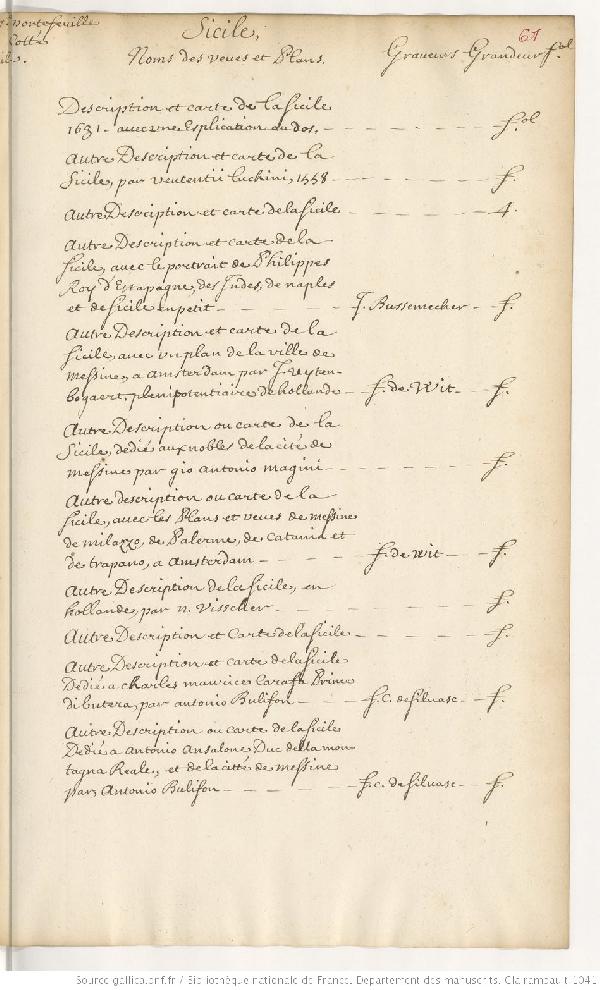 portefeuille
Cotté
Sicile,
61
Noms des veues et Plans. Graveurs Grandeur
fol
Description et carte de la Sicile
1631 - avec une Esplication au dos. - fol
Autre Description et carte de la
Sicile, par veutentii Luchini, 1558 - f.
Autre Description et carte de la Sicile - 4.
Autre Description et carte de la
Sicile, avec le portrait de Philippes
Roy d'Estapagne, des Indes, de naples
et de Sicile en petit - J. Bussemecher - f.
Autre Description et carte de la
Sicile avec un plan de la ville de
Messine, a Amsterdam par J. uyten-
bogaert, plenipotentiaire de hollande - f. de Wit - f.
Autre Description ou carte de la
Sicile, dedié aux nobles de la cité de
Messine par gio Antonio Magini - f.
Autre description ou carte de la
Sicile, avec les Plans et veues de Messine
de milazzo, de Palerme, de Catania et
de trapano, a Amsterdam - f. de wit - f.
Autre Description de la Sicile, en
hollande, par n. Visscher - f.
Autre Description et Carte de la Sicile - f.
Autre Description et carte de la Sicile
Dédié a charles maurice Carafa Prince
di butera, par antonio Bulifon - f. C. de Silvasc - f.
Autre Description ou carte de la Sicile
Dedié a Antonio Ansalone Duc della mon
tagna Reale, et de la cité de Messine
par Antonio Bulifon - f. c. de Silvasc - f.
Source gallica.bnf.fr / Bibliothèque nationale de France. Département des manuscrits. Clairambault 1041